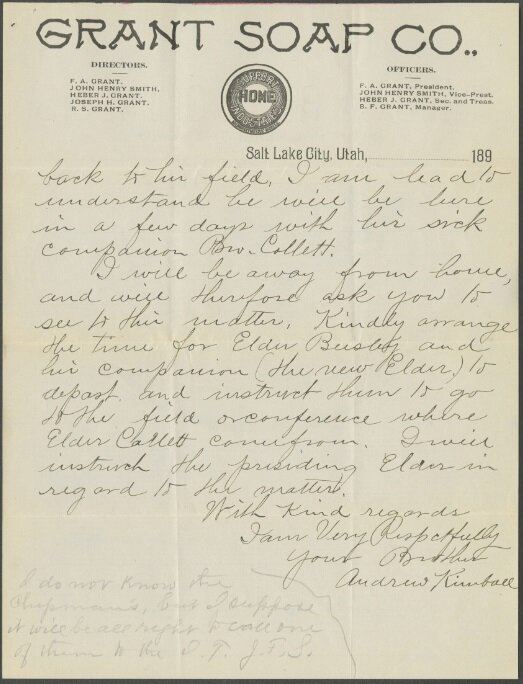 GRANT SOAP CO.,
DIRECTORS.
F. A. GRANT.
JOHN HENRY SMITH,
HEBER J. GRANT.
JOSEPH H. GRANT.
R. S. GRANT.
SUPPORT
HOME
INDUSTRIES
OFFICERS.
F. A. GRANT, President.
JOHN HENRY SMITH, Vice-Prest.
HEBER J. GRANT, Sec. and Treas.
B. F. GRANT, Manager.
Salt Lake City, Utah, 189
back to his field, I am lead to
understand he will be here
in a few days with his sick
companion Bro. Collett.
I will be away from home,
and will therefore ask you to
see to this matter. Kindly arrange
the time for Elder Beesley and
his companion (the new Elder) to
depart and instruct them to go
to the field or conference where
Elder Collett come from. I will
instruct the presiding Elder in
regard to the matter.
With Kind regards
I am Very Respectfully
Your Brother
Andrew Kimball
I do not know the
Chipman's, but I suppose
it will be all right to call one
of them to the I. T. J. F. S.